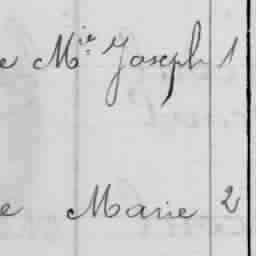 e Mie Joseph 1
e Marie 2